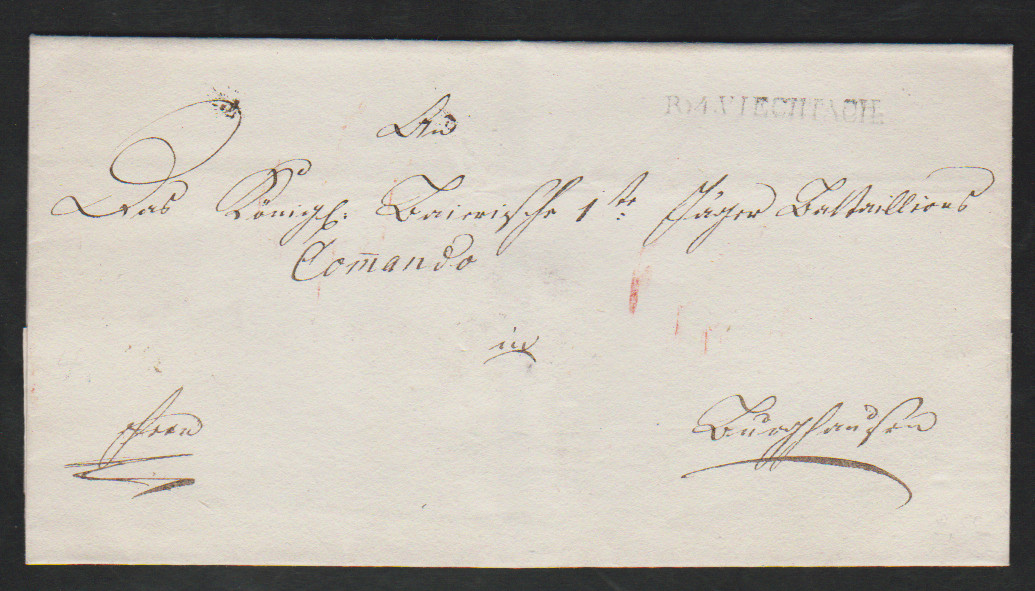 R.4.VIECHTACH.
An
Das Königl: Baierische 1te Jäger Battaillions
Com̄ando
in
Burghausen